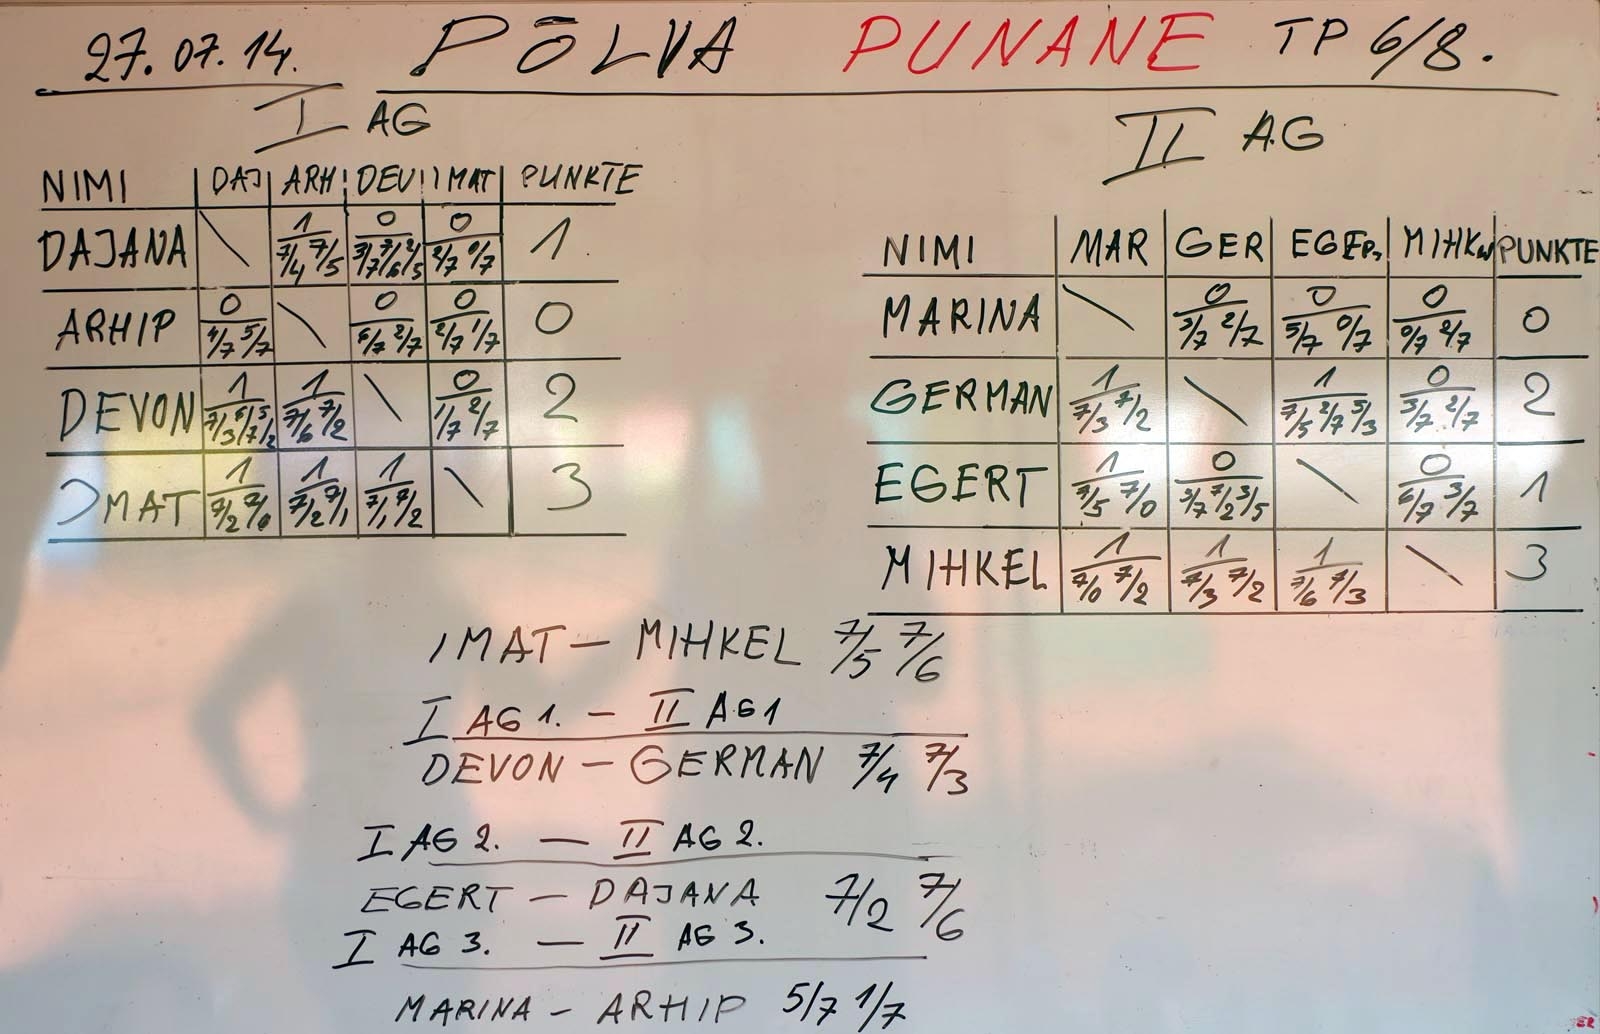 27.07.14. PÕLVA PUNANE TP 6/8.
I AG
NIMI DAJ ARH DEV IMAT PUNKTE
DAJANA \ 1 7/4 7/5 0 3/7 7/6 2/5 0 2/7 0/7 1
ARHIP 0 4/7 5/7 \ 0 6/7 2/7 0 2/7 1/7 0
DEVON 1 7/3 6/7 5/2 1 7/6 7/2 \ 0 1/7 2/7 2
IMAT 1 7/2 7/0 1 7/2 7/1 1 7/1 7/2 \ 3
II AG
NIMI MAR GER EGER MIHK PUNKTE
MARINA \ 0 3/7 2/7 0 5/7 0/7 0 0/7 2/7 0
GERMAN 1 7/3 7/2 \ 1 7/5 2/7 5/3 0 3/7 2/7 2
EGERT 1 7/5 7/0 0 5/7 7/2 3/5 \ 0 6/7 3/7 1
MIHKEL 1 7/0 7/2 1 7/3 7/2 1 7/6 7/3 \ 3
IMAT – MIHKEL 7/5 7/6
I AG 1. – II AG1
DEVON – GERMAN 7/4 7/3
I AG 2. – II AG 2.
EGERT – DAJANA 7/2 7/6
I AG 3. – II AG 3.
MARINA – ARHIP 5/7 1/7